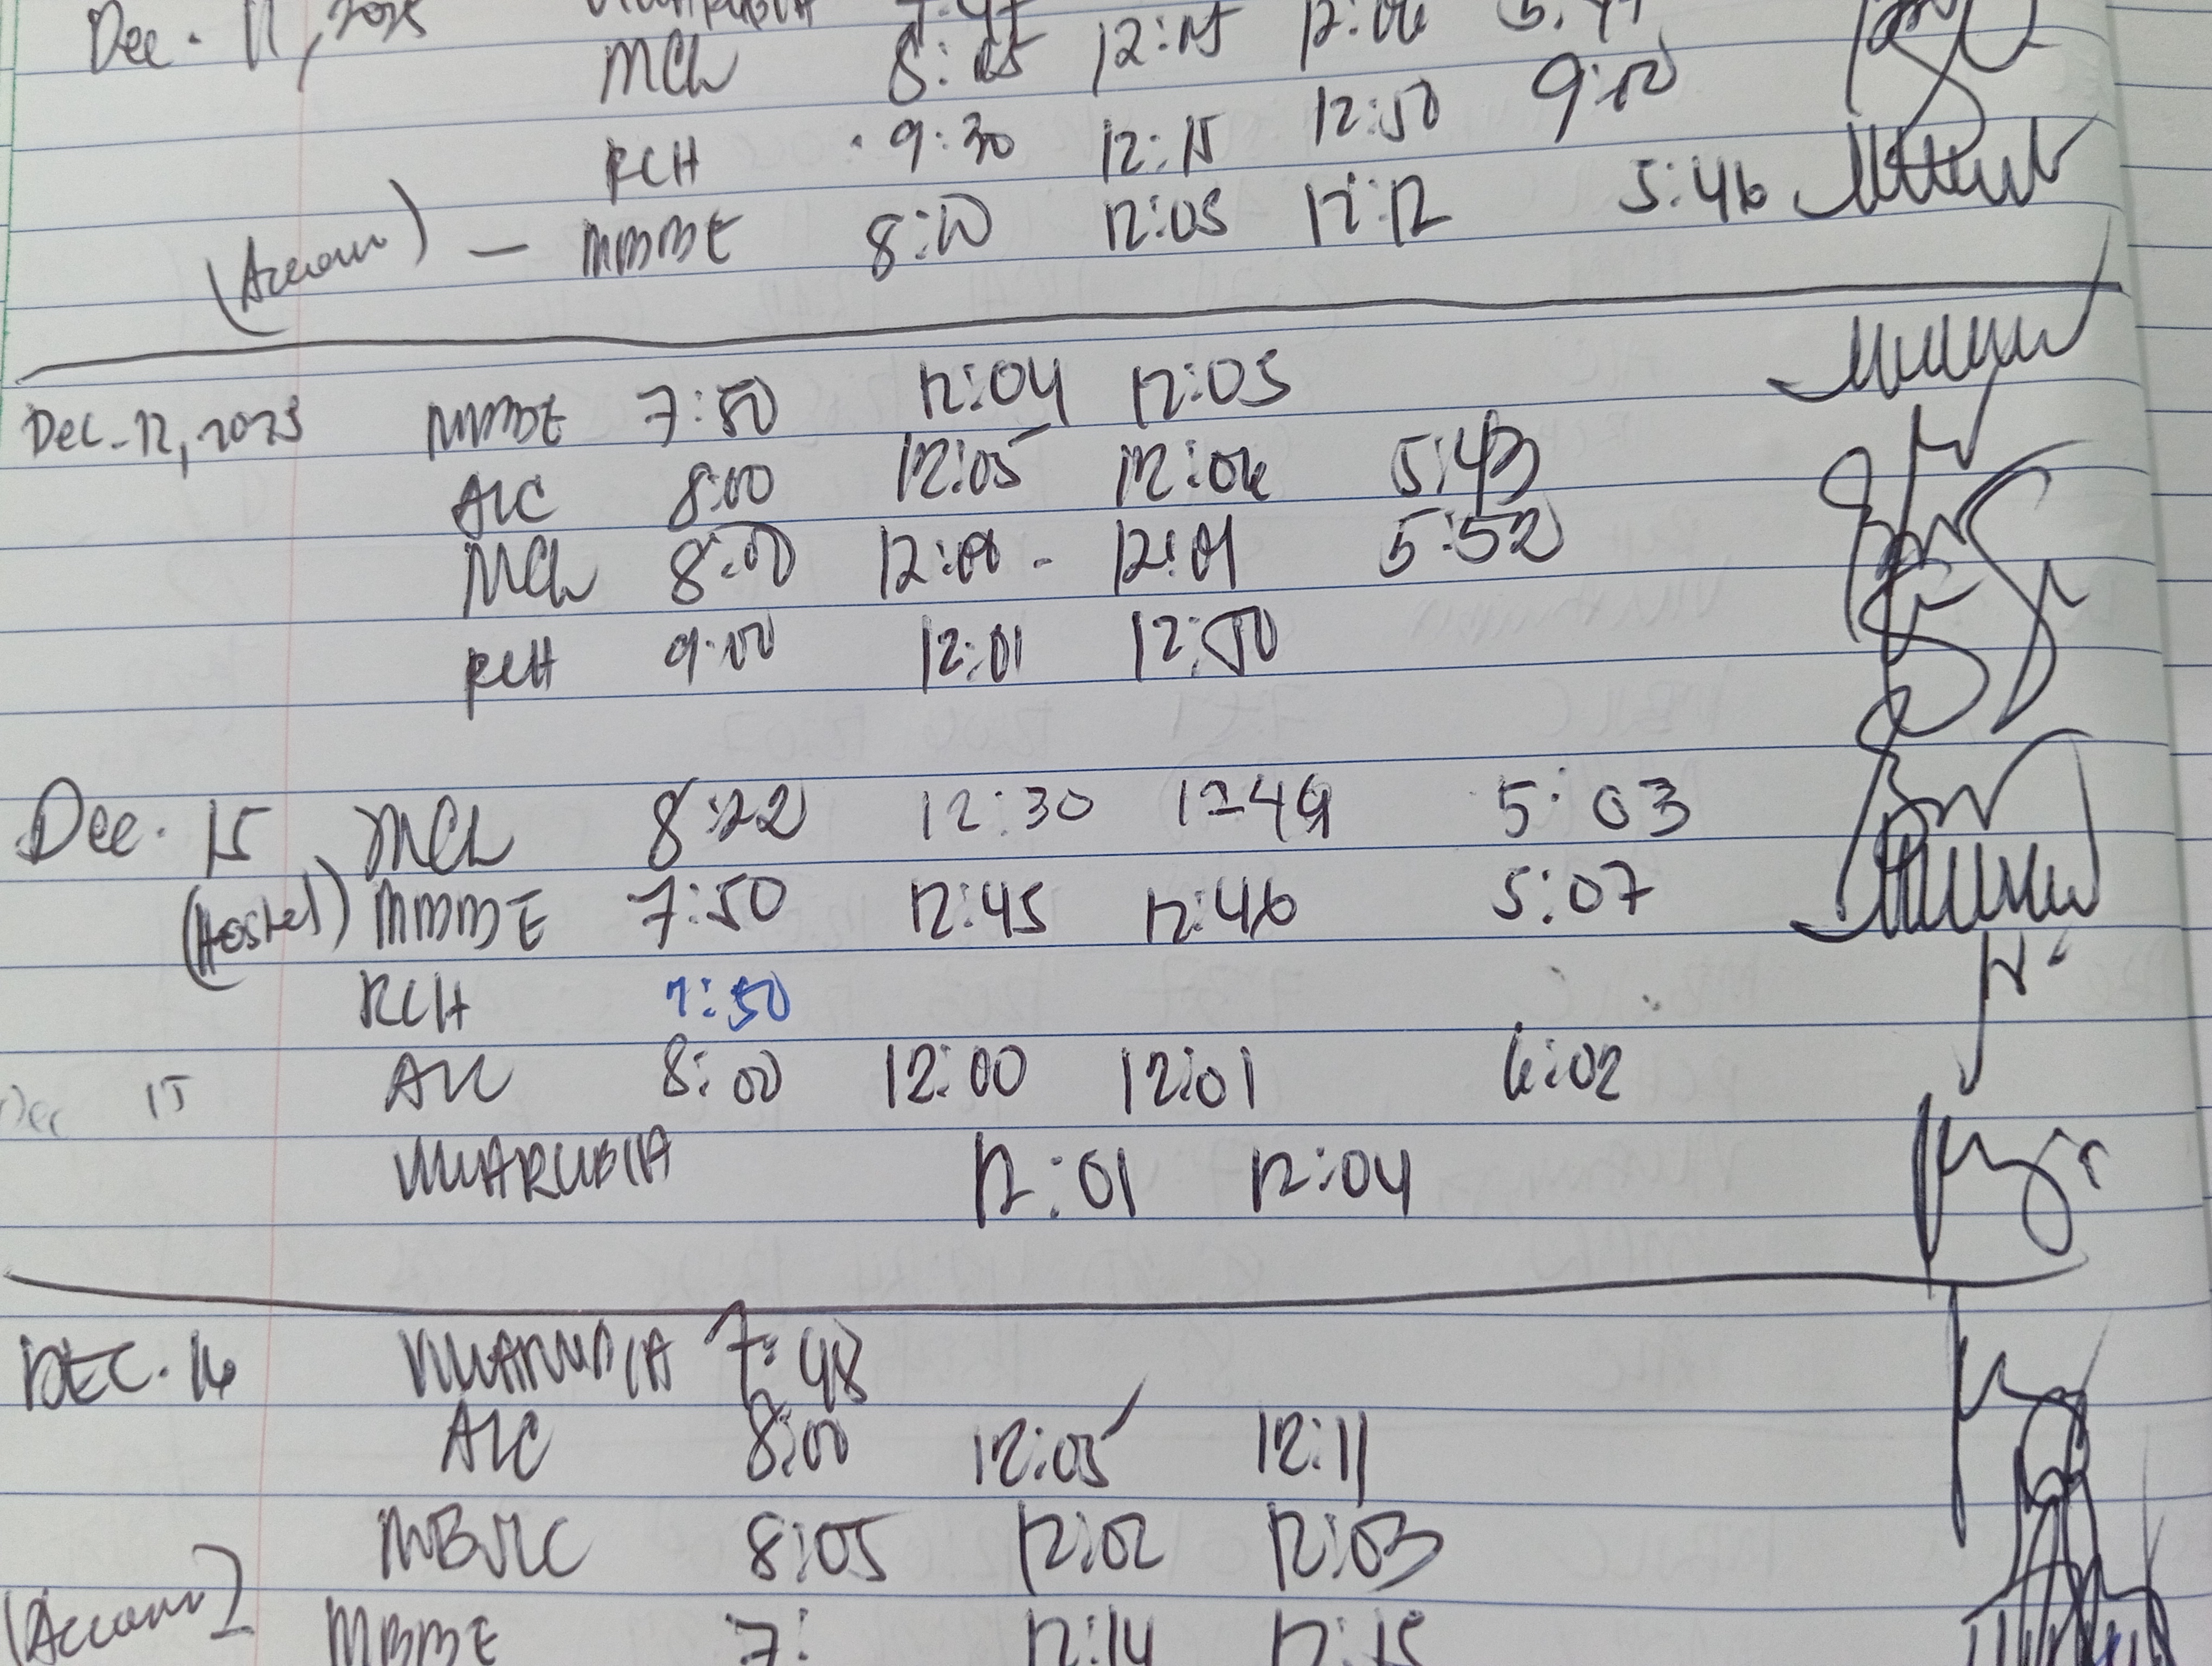 Dec. 11, 2025
MCL 8:05 12:05 12:06
RCH 9:30 12:15 12:50 9:00
(Accom) — MBME 8:10 12:05 12:12 5:46
Dec. 12, 2025 MBME 7:50 12:04 12:05
ALC 8:00 12:05 12:06 5:43
MCL 8:00 12:00 - 12:01 5:52
RCH 9:00 12:01 12:50
Dec. 15 MCL 8:22 12:30 12:49 5:03
(Hostel) MBME 7:50 12:45 12:46 5:07
RCH 7:50
Dec 15 ALC 8:00 12:00 12:01 6:02
VILLARUBIA 12:01 12:04
DEC. 16 VILLARUBIA 7:48
ALC 8:00 12:05 12:11
MBJLC 8:05 12:02 12:03
(Accom) MBME 7: 12:14 12:15